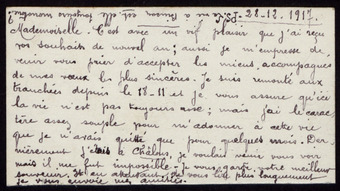 P.S. La rue Buirson est elle toujours montante
28-12-1917.
Mademoiselle. C'est avec un vif plaisir que j'ai reçu
vos souhaits de nouvel an; aussi je m'empresse de
venir vous prier d'accepter les miens, accompagnés
de mes vœux les plus sincères. Je suis remonté aux
tranchées depuis le 18-11 et je vous assure qu'ici
la vie n'est pas toujours rose; mais j'ai le carac
tère assez souple pour m'adonner à cette vie
que je n'avais quitté que pour quelques mois. Der-
nièrement j'étais à Châlons, je voulais venir vous voir
mais il me fut impossible. Je vous garde votre meilleur
souvenir. Et en attendant de vous lire plus longuement
je vous envoie mes amitiés.